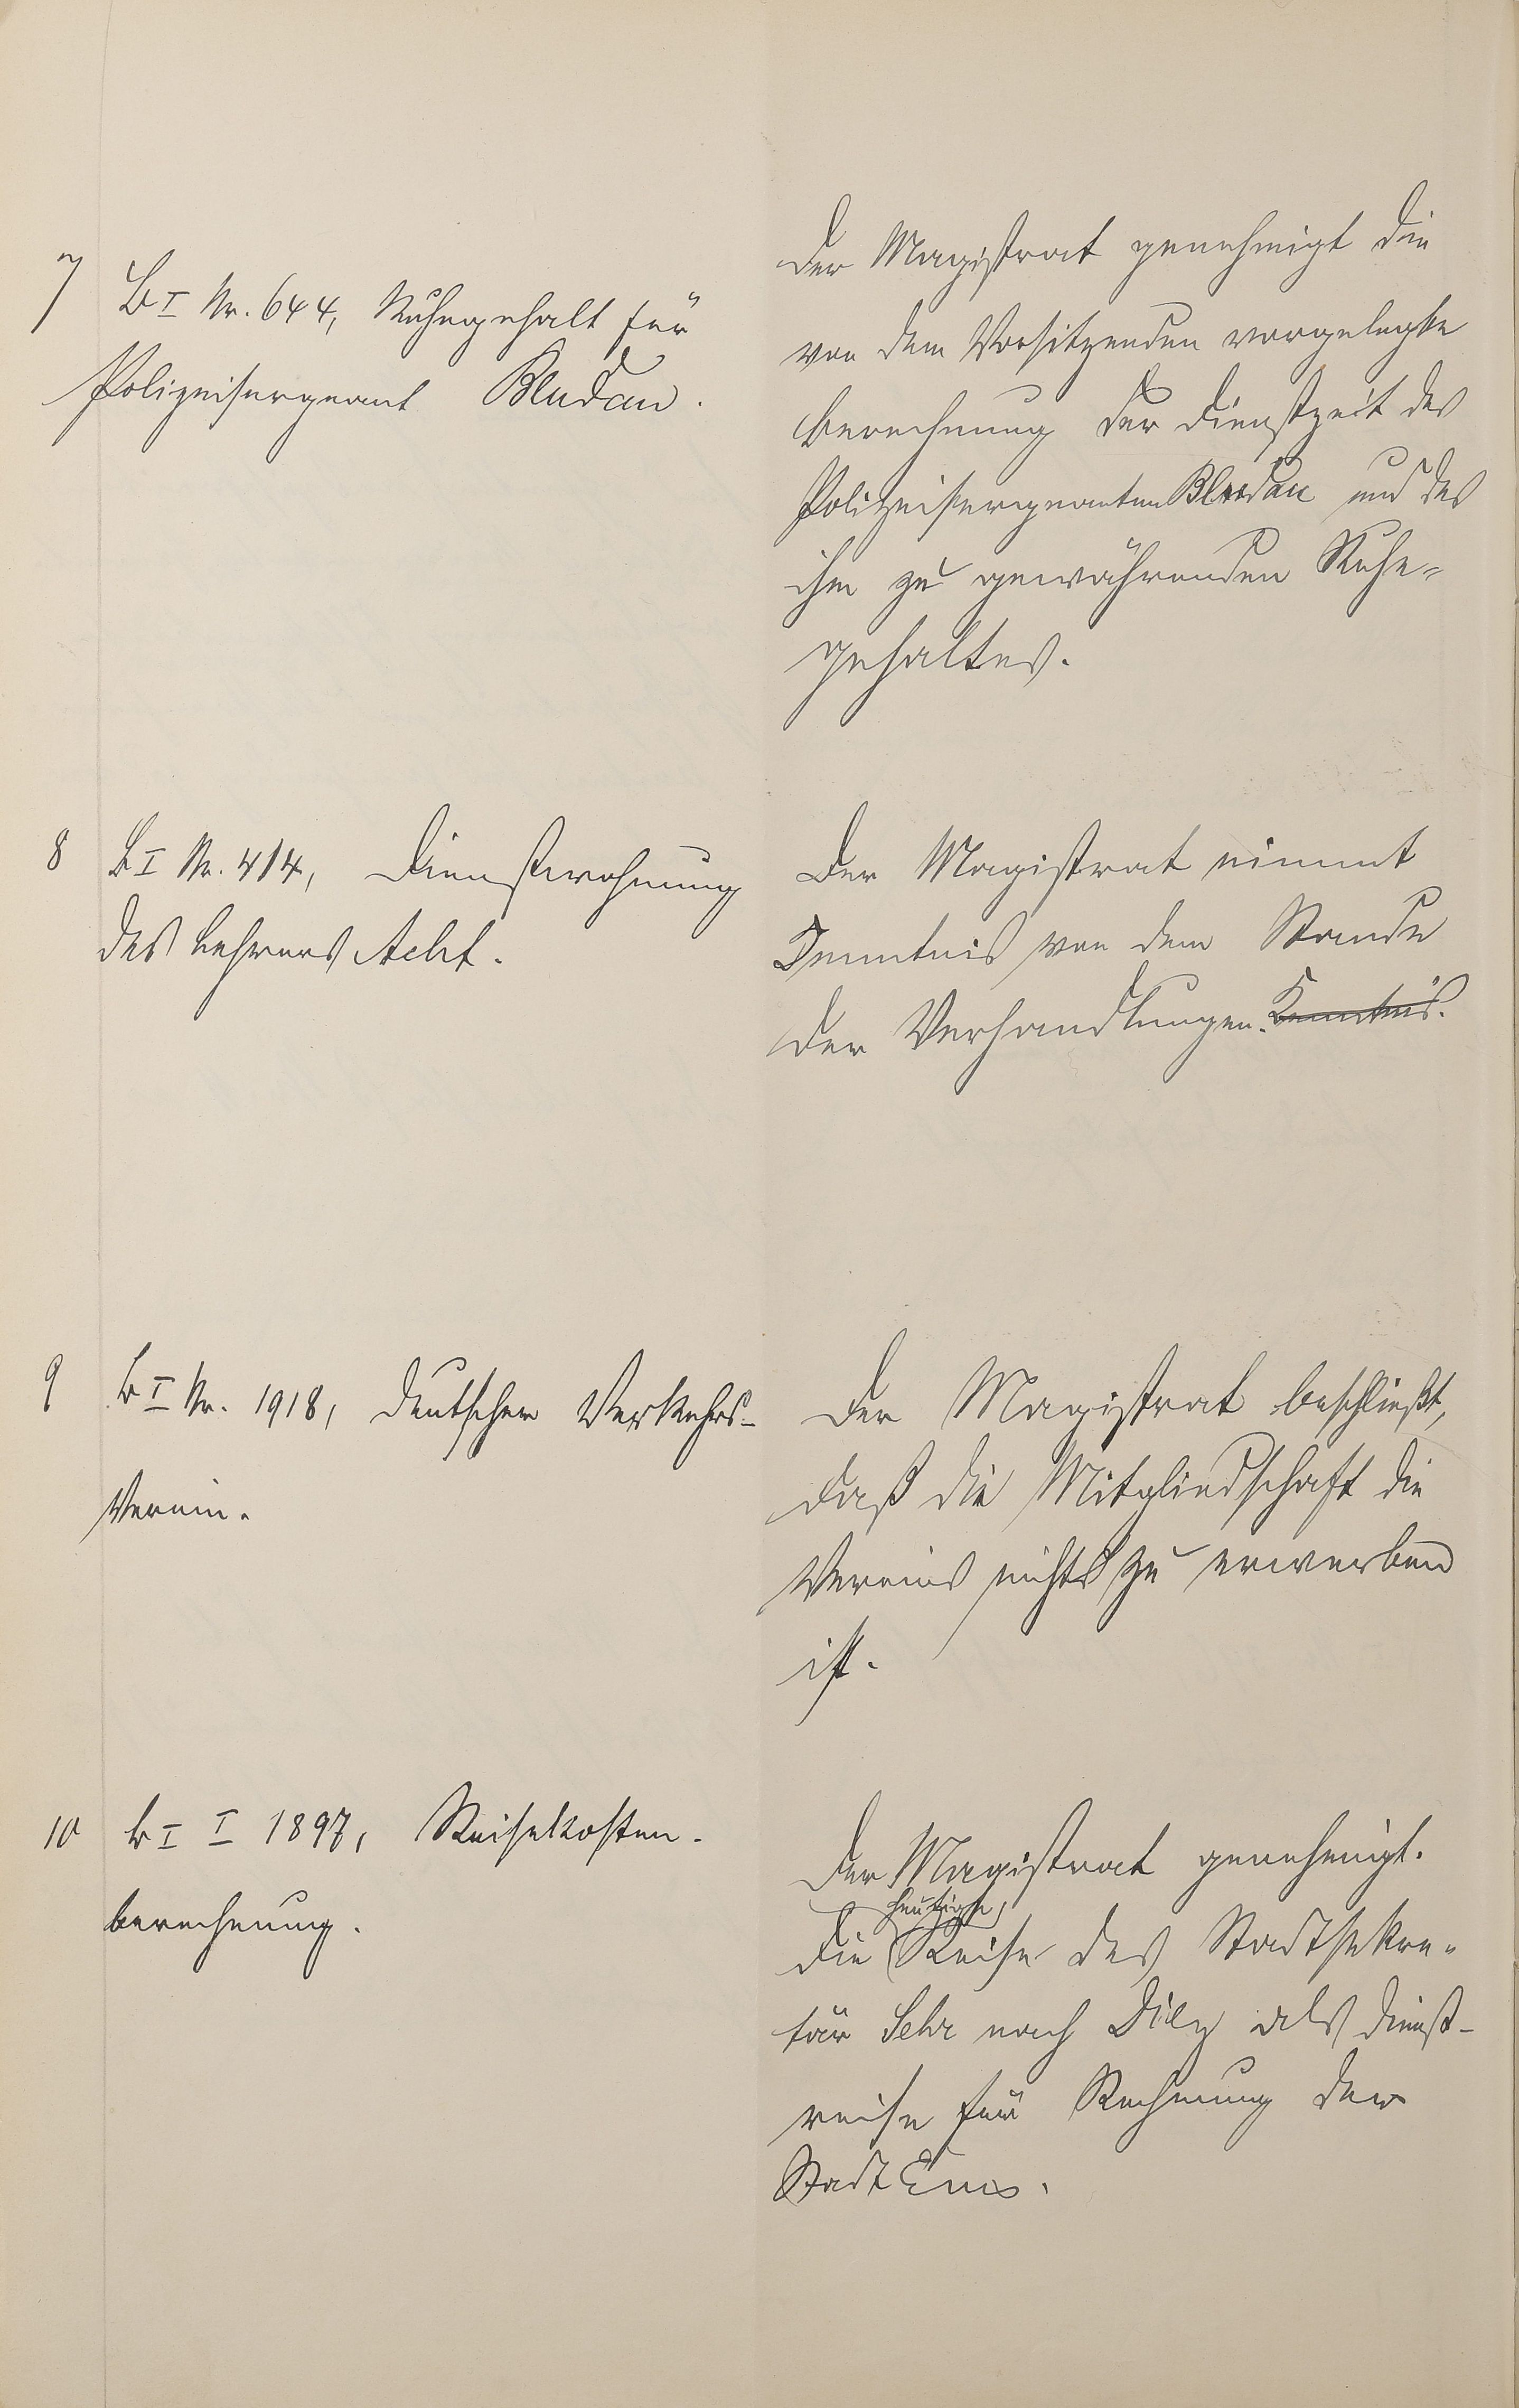 7 B I Nr. 644, Ruhegehalt für
Polizeisergeant Bludau.
Der Magistrat genehmigt die
von dem Vorsitzenden vorgelegte
Berechnung der Dienstzeit des
Polizeisergeanten Bludau und des
ihm zu gewährenden Ruhe=
gehaltes.
8 B I Nr. 414, Dienstwohnung
des Lehrers Acht.
Der Magistrat nimmt
Kenntnis von dem Stande
der Verhandlungen. Kenntnis.
9 B I Nr. 1918, Deutscher Verkehrs-
Verein.
Der Magistrat beschließt,
daß die Mitgliedschaft die
Vereins nicht zu erwerben
ist.
10 B I I 1897, Reisekosten-
berechnung.
Der Magistrat genehmigt.
heutige
die Reise des Stadtsekre-
tär nach Diez als Dienst-
reise für Rechnung der
Stadt Ems.